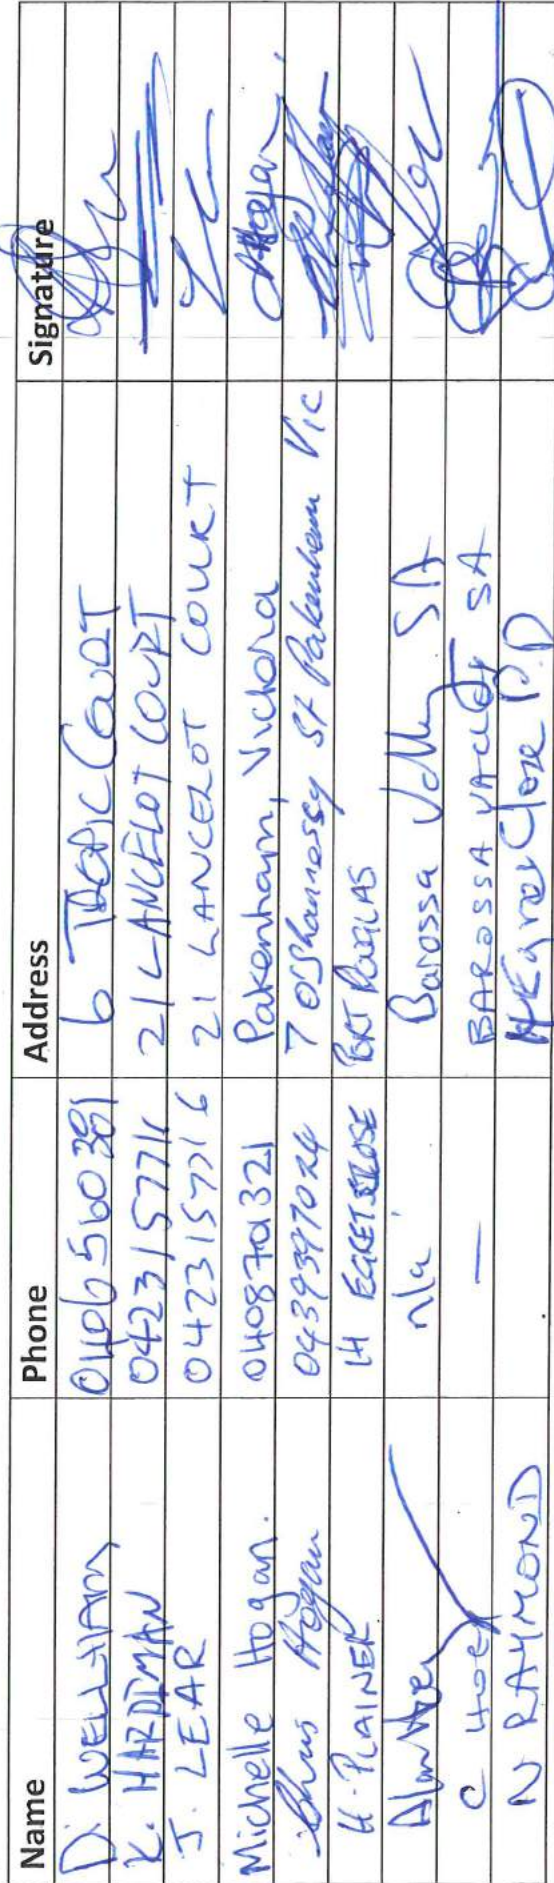 Name Phone Address Signature
D. WELLHAM 6 TROPIC COURT
K. HARDIMAN 0423157716 21 LANCELOT COURT
J. LEAR 0423157716 21 LANCELOT COURT
Michelle Hogan. Pakenham, Victoria
Chris Hogan 0439397024 7 O'Shannessy St Pakenham Vic
H. PLAINER 14 EGRET CLOSE PORT DOUGLAS
Alan n/a Barossa Valley SA
C HOE — BAROSSA VALLEY SA
N RAYMOND Egret Close P.D